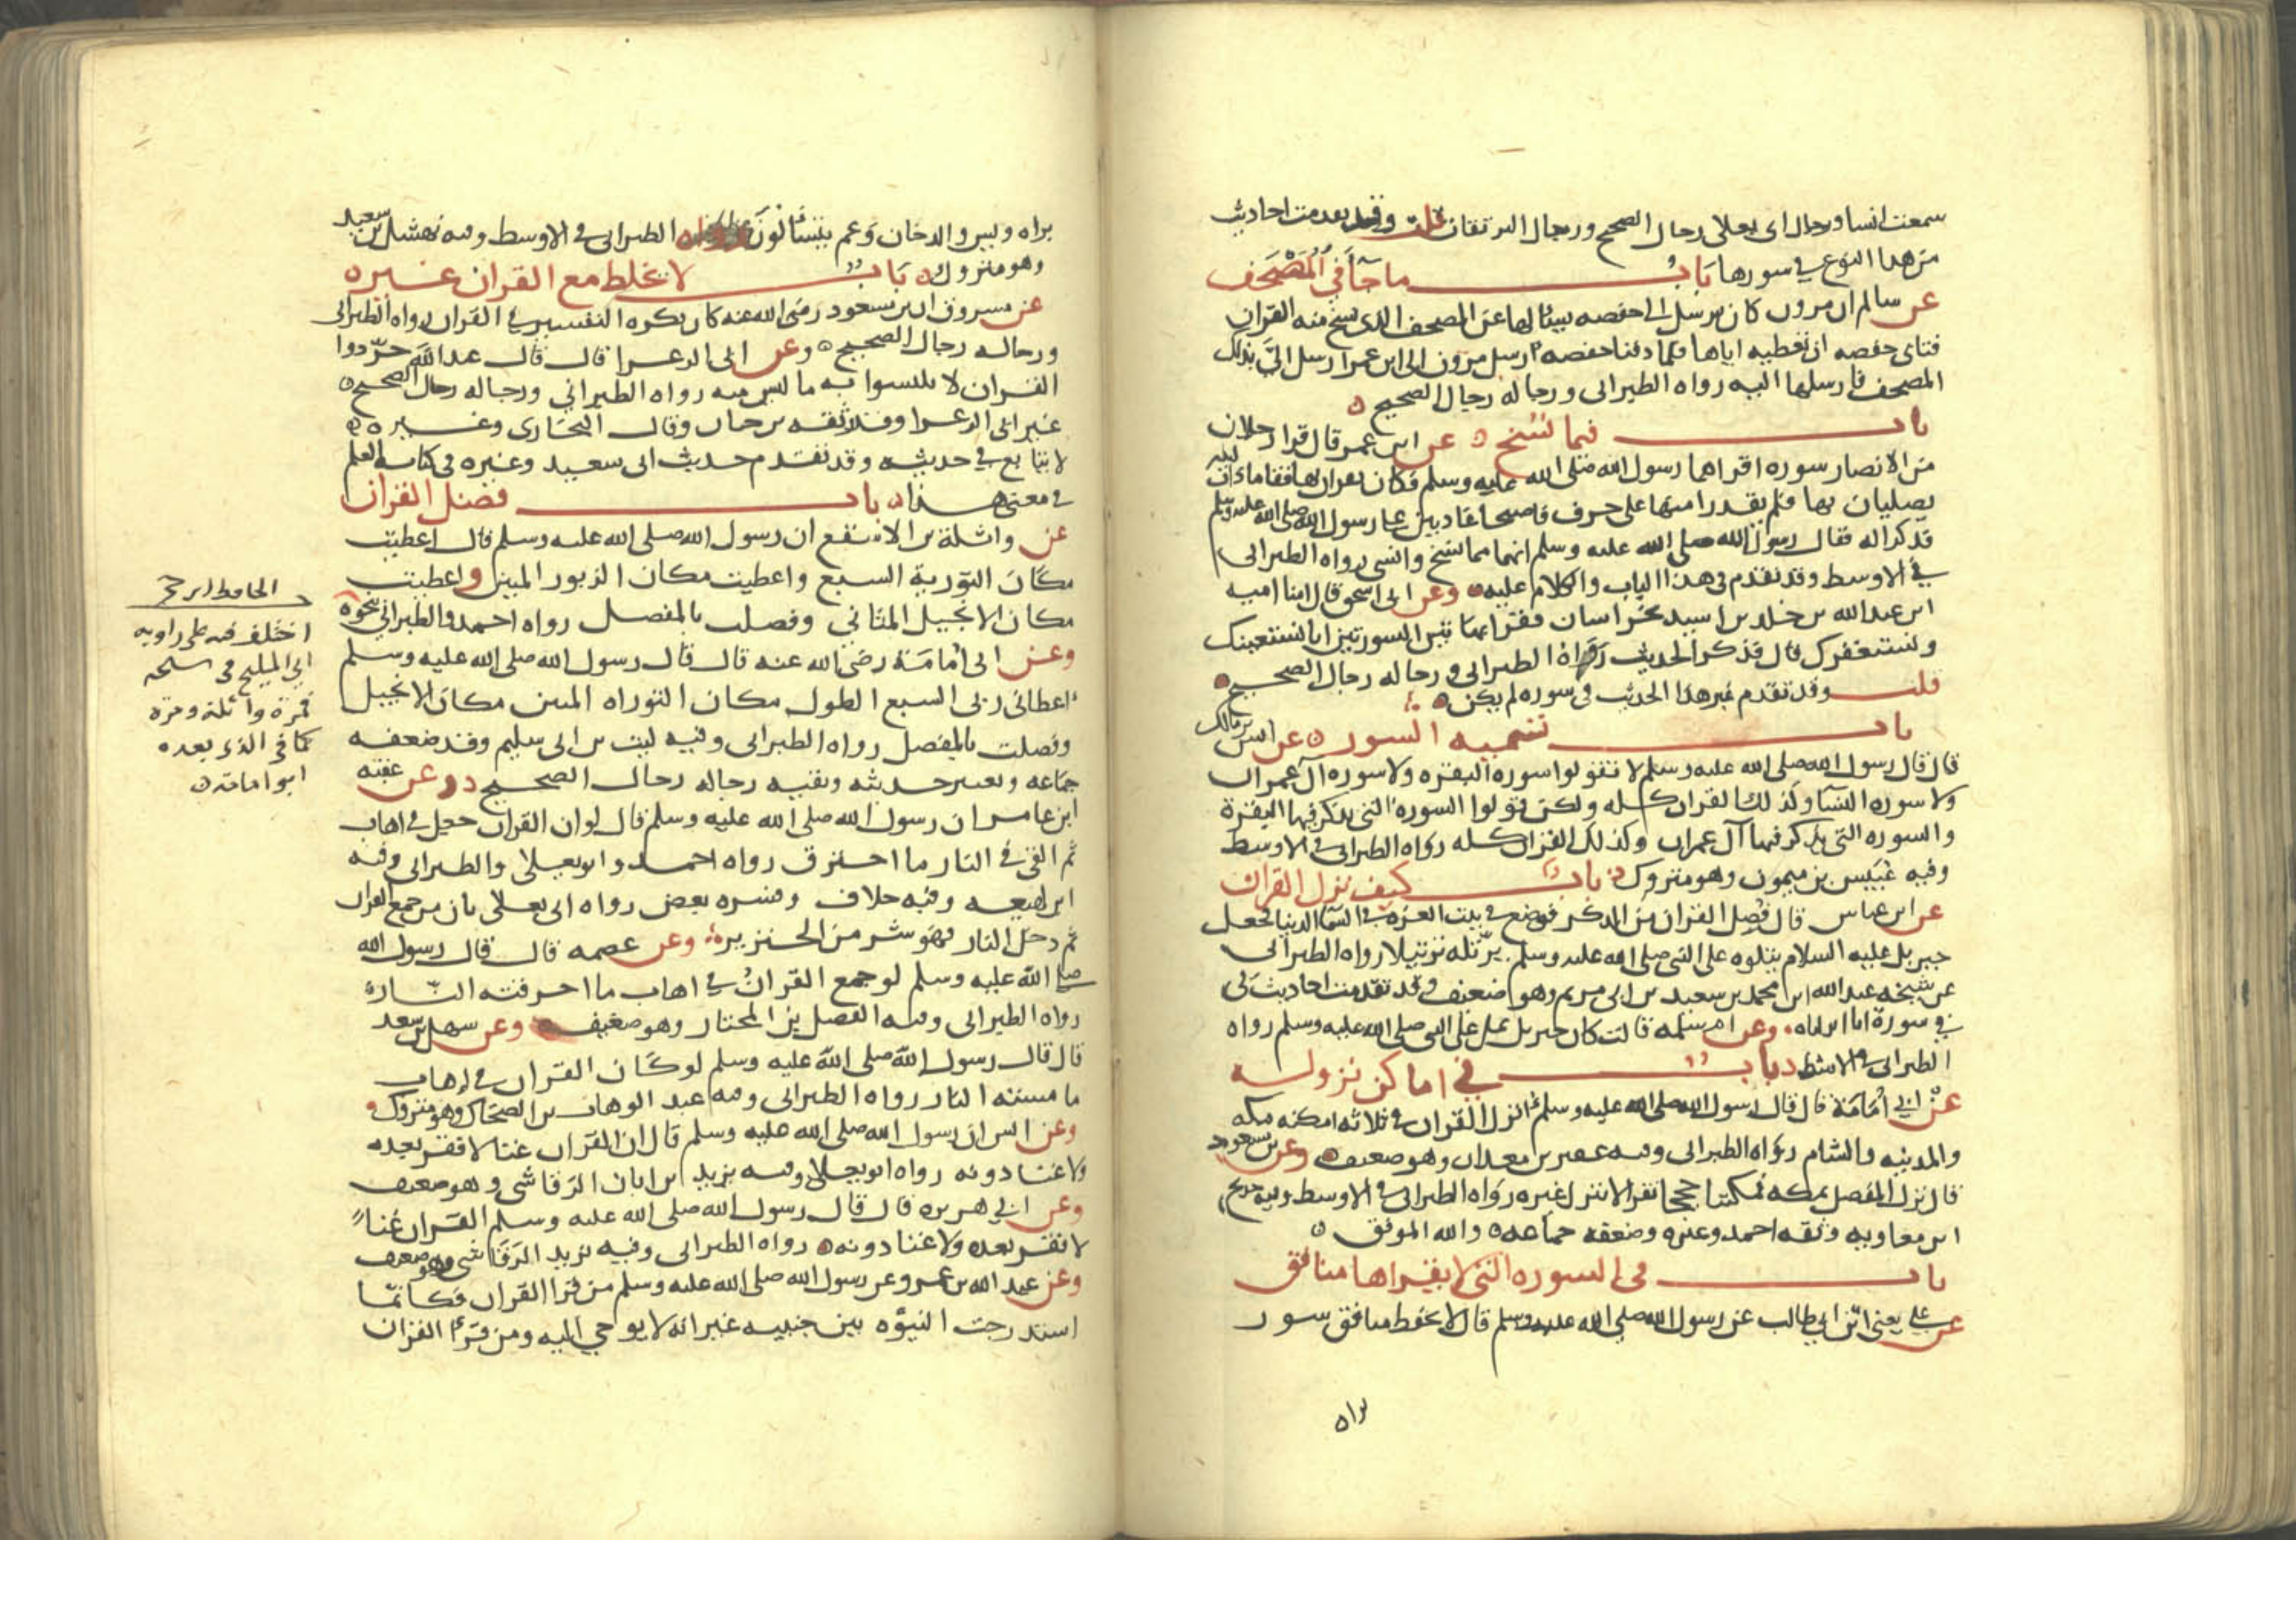 سمعت انسا ورجال ابى يعلى رجال الصحيح ورجال البزار ثقات قلت وقد تقدمت احاديث
من هذا النوع في سورها باب ما جاء في المصحف
عن سالم ان مروان كان يرسل الى حفصه يسئالها عن المصحف الذى نسخ منه القران
فتابى حفصه ان تعطيه اياها فلما دفنا حفصه ارسل مرون الى ابن عمر ارسل اليّ بذلك
المصحف فارسلها اليه رواه الطبرانى ورجاله رجال الصحيح
باب فيما نسخ عن ابن عمر قال قرا رجلان
من الانصار سوره اقراهما رسول الله صلى الله عليه وسلم فكانا يقران بها فقاما ذات ليله
يصليان بها فلم يقدرا منها على حرف فاصبحا غاديين على رسول الله صلى الله عليه وسلم
فذكرا له فقال رسول الله صلى الله عليه وسلم انها مما نسخ وانسى رواه الطبرانى
في الاوسط وقد تقدم في هذا الباب والكلام عليه وعن ابى اسحق قال امنا اميه
ابن عبد الله بن خلد بن اسيد بخراسان فقرا بهاتين السورتين انا نستعينك
ونستغفرك قال فذكر الحديث رواه الطبرانى ورجاله رجال الصحيح
قلت وقد تقدم غير هذا الحديث في سوره لم يكن
باب تسميه السور عن انس بن مالك
قال قال رسول الله صلى الله عليه وسلم لا تقولوا سوره البقره ولا سوره آل عمران
ولا سوره النسا وكذلك القران كله ولكن قولوا السوره التى يذكر فيها البقرة
والسوره التى يذكر فيها آل عمران وكذلك القران كله رواه الطبرانى في الاوسط
وفيه عبيس بن ميمون وهو متروك باب كيف نزل القران
عن ابن عباس قال فصل القران من الذكر فوضع في بيت العزه في السما الدنيا فجعل
جبريل عليه السلام ينزله على النبى صلى الله عليه وسلم يرتله ترتيلا رواه الطبرانى
عن شيخه عبد الله ابن محمد بن سعيد بن ابى مريم وهو ضعيف وقد تقدمت احاديث في
في سورة انا انزلناه وعن ام سلمه قالت كان جبريل يمل على النبى صلى الله عليه وسلم رواه
الطبرانى في الاوسط باب في اماكن نزوله
عن ابي أمامة قال قال رسول الله صلى الله عليه وسلم انزل القران في ثلاثه امكنه مكه
والمدينه والشام رواه الطبرانى وفيه عفير بن معدان وهو ضعيف وعن بن مسعود
قال نزل المفصل بمكه فمكثنا حججا نقرا لا ينزل غيره رواه الطبرانى في الاوسط وفيه حديج
ابن معاويه وثقه احمد وغيره وضعفه جماعه والله الموفق
باب في السوره التى لا يقراها منافق
عن علي يعني ابن ابي طالب عن رسول الله صلى الله عليه وسلم قال لا يحفظ منافق سور
براه
براه ويس والدخان وعم يتسألون رواه الطبرانى في الاوسط وفيه نهشل بن سعيد
وهو متروك باب لا يخلط مع القران غيره
عن مسروق ان بن مسعود رضى الله عنه كان يكره التفسير في القران رواه الطبرانى
ورجاله رجال الصحيح وعن ابى الزعرا قال قال عبد الله جرّدوا
القران لا تلبسوا به ما ليس منه رواه الطبراني ورجاله رجال الصحيح
غير ابى الزعرا وقد وثقه بن حبان وقال البخارى وغيره
لا يتابع في حديثه وقد تقدم حديث ابى سعيد وغيره في كتابه العلم
في معنى هذا باب فضل القران
عن واثلة بن الاسقع ان رسول الله صلى الله عليه وسلم قال اعطيت
مكان التورية السبع واعطيت مكان الزبور المئين واعطيت
مكان الانجيل المثاني وفضلت بالمفصل رواه احمد والطبراني بنحوه
وعن ابى أمامة رضى الله عنه قال قال رسول الله صلى الله عليه وسلم
اعطانى ربى السبع الطول مكان التوراه المئين مكان الانجيل
وفضلت بالمفصل رواه الطبرانى وفيه ليث بن ابى سليم وقد ضعفه
جماعه ويعتبر حديثه وبقيه رجاله رجال الصحيح وعن عقبه
ابن عامر ان رسول الله صلى الله عليه وسلم قال لو ان القران جعل في اهاب
ثم القى في النار ما احترق رواه احمد وابو يعلى والطبرانى وفيه
ابن لهيعه وفيه خلاف وفسره بعض رواه ابى يعلى بان من جمع القران
ثم دخل النار فهو شر من الخنزير وعن عصمه قال قال رسول الله
صلى الله عليه وسلم لو جمع القران في اهاب ما احرقته النار
رواه الطبرانى وفيه الفضل بن المختار وهو ضعيف وعن سهل بن سعد
قال قال رسول الله صلى الله عليه وسلم لو كان القران في اهاب
ما مسته النار رواه الطبرانى وفيه عبد الوهاب بن الضحاك وهو متروك
وعن انس ان رسول الله صلى الله عليه وسلم قال ان القران غنا لا فقر بعده
ولا غنا دونه رواه ابو يعلى وفيه يزيد ابن ابان الرقاشى وهو ضعيف
وعن ابي هريره قال قال رسول الله صلى الله عليه وسلم القران غناً
لا فقر بعده ولا غنا دونه رواه الطبرانى وفيه يزيد الرقاشى وهو ضعيف
وعن عبد الله بن عمرو عن رسول الله صلى الله عليه وسلم من قرا القران فكانما
استدرجت النبوه بين جنبيه غير انه لا يوحي اليه ومن قرأ القران
الحافظ ابن حجر
اختلف فيه على راويه
ابي المليح في
فمرة واثلة ومرة
كما في الذى بعده
ابو امامة